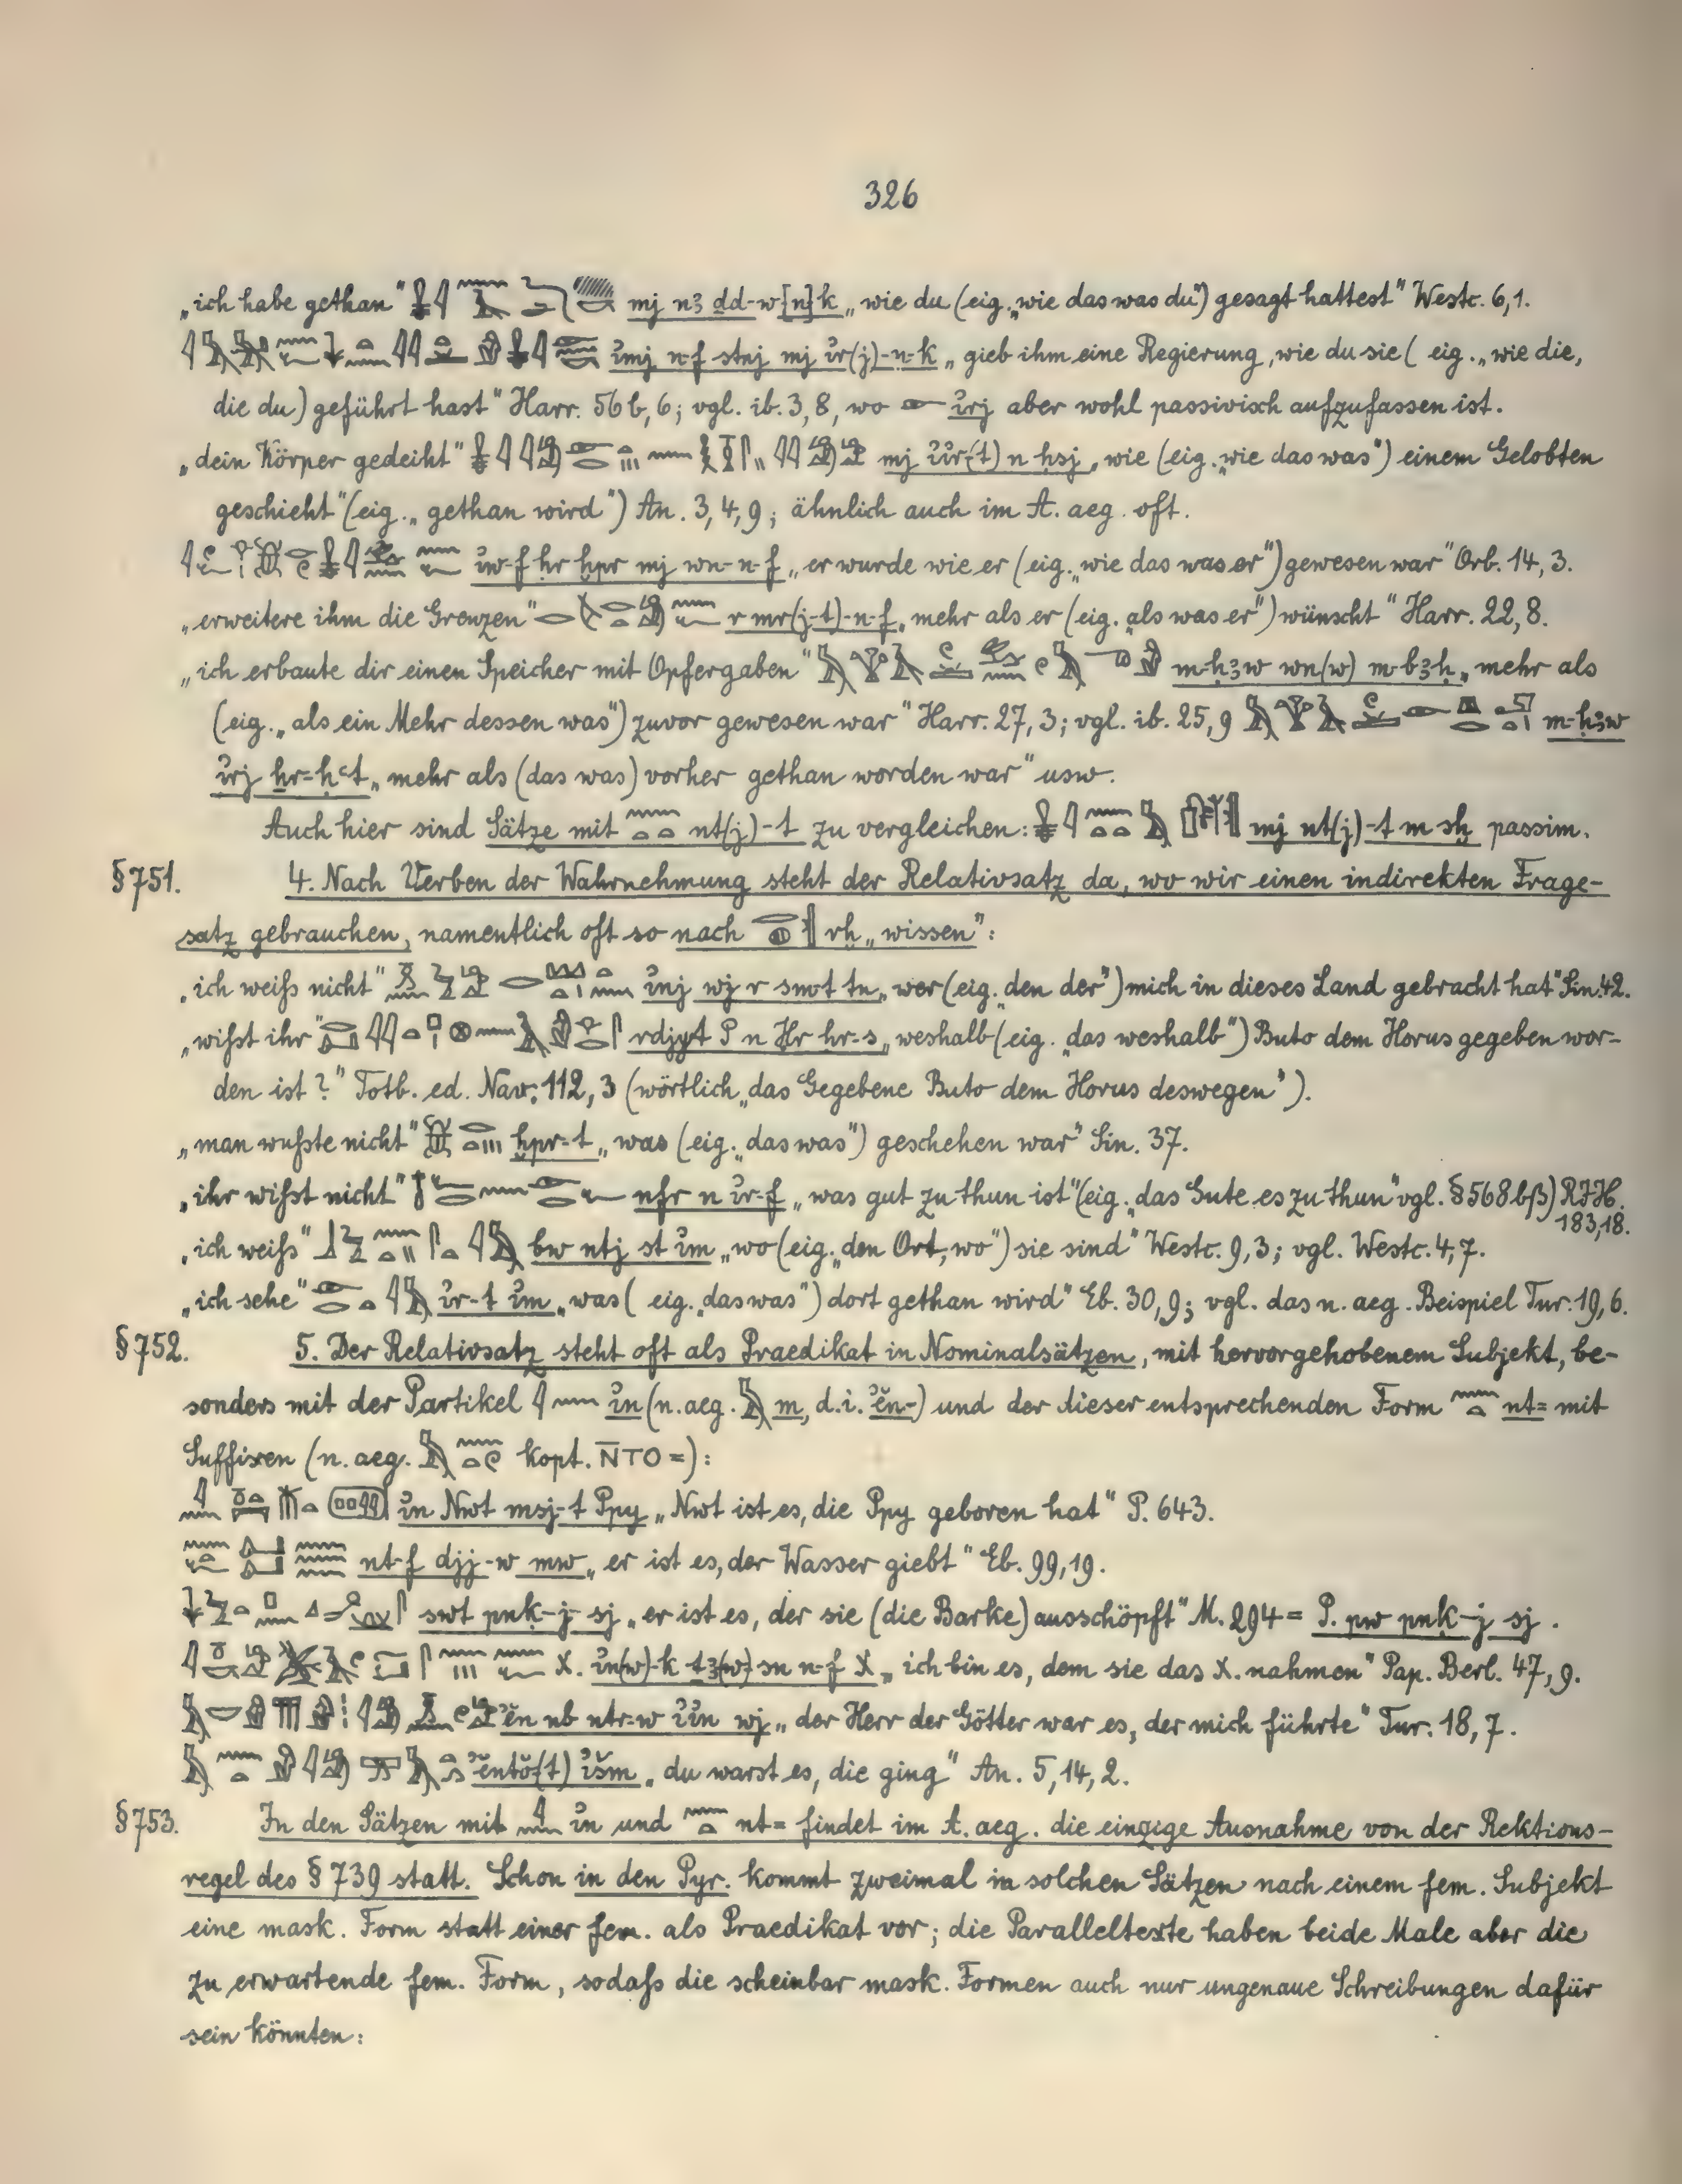 326
„ich habe gethan“ mj nꜣ dd-w[n]k „wie du (eig. „wie das was du“) gesagt hattest“ Westc. 6,1.
i͗mj n-f stnj mj i͗r(j)-n-k „gieb ihm eine Regierung, wie du sie (eig. „wie die,
die du) geführt hast“ Harr. 56b,6; vgl. ib. 3,8, wo i͗rj aber wohl passivisch aufzufassen ist.
„dein Körper gedeiht“ mj i͗i͗r(-t) n ḥsj „wie (eig. „wie das was“) einem Gelobten
geschieht“ (eig. „gethan wird“) An. 3,4,9; ähnlich auch im A. aeg. oft.
i͗w-f ḥr ḫpr mj wn-n-f „er wurde wie er (eig. „wie das was er“) gewesen war“ Orb. 14,3.
„erweitere ihm die Grenzen“ r mr(j-t)-n-f „mehr als er (eig. „als was er“) wünscht“ Harr. 22,8.
„ich erbaute dir einen Speicher mit Opfergaben“ m-ḥꜣw wn(w) m-bꜣḥ „mehr als
(eig. „als ein Mehr dessen was“) zuvor gewesen war“ Harr. 27,3; vgl. ib. 25,9 m-ḥꜣw
i͗rj ḫr-ḥꜥt „mehr als (das was) vorher gethan worden war“ usw.
Auch hier sind Sätze mit nt(j)-t zu vergleichen: mj nt(j)-t m sẖ passim.
§751. 4. Nach Verben der Wahrnehmung steht der Relativsatz da, wo wir einen indirekten Frage-
satz gebrauchen, namentlich oft so nach rḫ „wissen“:
„ich weiß nicht“ i͗nj wj r smt tn „wer (eig. „den der“) mich in dieses Land gebracht hat“ Sin. 42.
„wißt ihr“ rdjyt P n Ḥr ḥr-s „weshalb (eig. „das weshalb“) Buto dem Horus gegeben wor-
den ist?“ Totb. ed. Nav. 112,3 (wörtlich „das Gegebene Buto dem Horus deswegen“).
„man wußte nicht“ ḫpr-t „was (eig. „das was“) geschehen war“ Sin. 37.
„ihr wißt nicht“ nfr n i͗r-f „was gut zu thun ist“ (eig. „das Gute es zu thun“ vgl. §568bβ) RIH.
183,18.
„ich weiß“ bw ntj st i͗m „wo (eig. „den Ort, wo“) sie sind“ Westc. 9,3; vgl. Westc. 4,7.
„ich sehe“ i͗r-t i͗m „was (eig. „das was“) dort gethan wird“ Eb. 30,9; vgl. das n. aeg. Beispiel Tur. 19,6.
§752. 5. Der Relativsatz steht oft als Praedikat in Nominalsätzen, mit hervorgehobenem Subjekt, be-
sonders mit der Partikel i͗n (n. aeg. m, d.i. ʾĕn-) und der dieser entsprechenden Form nt= mit
Suffixen (n. aeg. kopt. N̄TO=):
i͗n Nwt msj-t Ppy „Nwt ist es, die Ppy geboren hat“ P. 643.
nt-f djj-w mw „er ist es, der Wasser giebt“ Eb. 99,19.
swt pnḳ-j sj „er ist es, der sie (die Barke) ausschöpft“ M. 294 = P. pw pnḳ-j sj.
X. i͗n(w)-k ṯꜣ(w) sn n-f X „ich bin es, dem sie das X. nahmen“ Pap. Berl. 47,9.
ʾĕn nb nṯr-w i͗i͗n wj „der Herr der Götter war es, der mich führte“ Tur. 18,7.
ʾĕntŏ(t) i͗šm „du warst es, die ging“ An. 5,14,2.
§753. In den Sätzen mit i͗n und nt= findet im A. aeg. die einzige Ausnahme von der Rektions-
regel des §739 statt. Schon in den Pyr. kommt zweimal in solchen Sätzen nach einem fem. Subjekt
eine mask. Form statt einer fem. als Praedikat vor; die Paralleltexte haben beide Male aber die
zu erwartende fem. Form, sodaß die scheinbar mask. Formen auch nur ungenaue Schreibungen dafür
sein könnten: